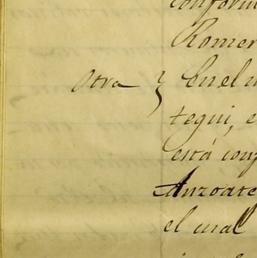 conform
Romer
Otra } En el
tegui, e
está conf
Anzoate
el cual